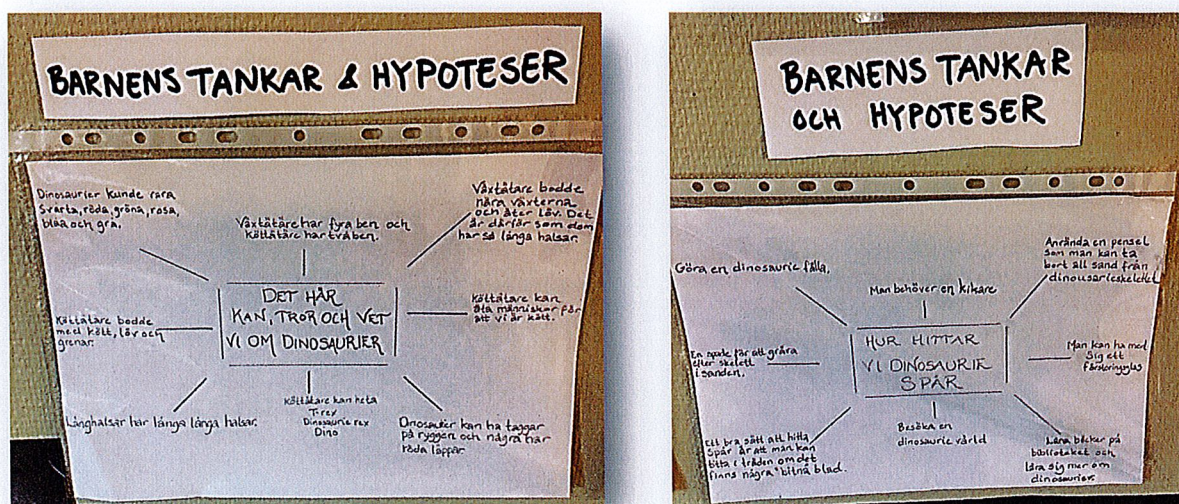 BARNENS TANKAR & HYPOTESER
Dinosaurier kunde vara
Svarta, röda, gröna, rosa,
blåa och grå.
Växtätare har fyra ben och
köttätare har två ben.
Växtätare bodde
nära växterna
och äter löv. Det
är därför som dom
har så långa halsar.
Köttätare bodde
med kött, löv och
grenar.
DET HÄR
KAN, TROR OCH VET
VI OM DINOSAURIER
Köttätare kan
äta människor för
att vi är kött.
Långhalsar har långa långa halsar.
Köttätare kan heta
T-rex
Dinosaurie rex
Dino
Dinosaurier kan ha taggar
på ryggen och några har
röda läppar.
BARNENS TANKAR
OCH HYPOTESER
Göra en dinosaurie fälla.
Man behöver en kikare
Använda en pensel
som man kan ta
bort all sand från
dinousarieskelettet
En spade för att gräva
efter skelett
i sanden.
HUR HITTAR
VI DINOSAURIE
SPÅR
Man kan ha med
sig ett
förstoringsglas
Ett bra sätt att hitta
spår är att man kan
titta i träden om det
finns några "bitna" blad.
Besöka en
dinosaurie värld
Låna böcker på
biblioteket och
lära sig mer om
dinosaurier.